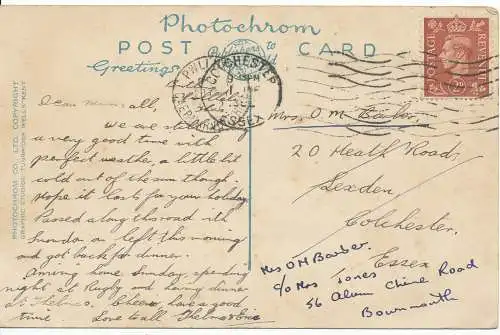 Photochrom
POST CARD
Greetings
PHOTOCHROM CO. LTD. COPYRIGHT
GRAPHIC STUDIOS TUNBRIDGE WELLS KENT
PWLLHELI
COLCHESTER
ESSEX
POSTAGE
REVENUE
Dear Mum & all,
We are still
a very good time with
perfect weather, a little bit
cold out of the sun though.
Hope it lasts for your holiday
Passed along this road with
Snowdon on left this morning
and got back for dinner.
Arriving home Sunday, spending
night at Rugby and having dinner
at Thelma's. Cheerio, have a good
time Love to all Thelma & Eric
Mrs. O. M. Barber,
20 Heath Road,
Lexden,
Colchester,
Essex
Mrs O M Barber.
c/o Mrs Jones
56 Alum Chine Road
Bournmouth